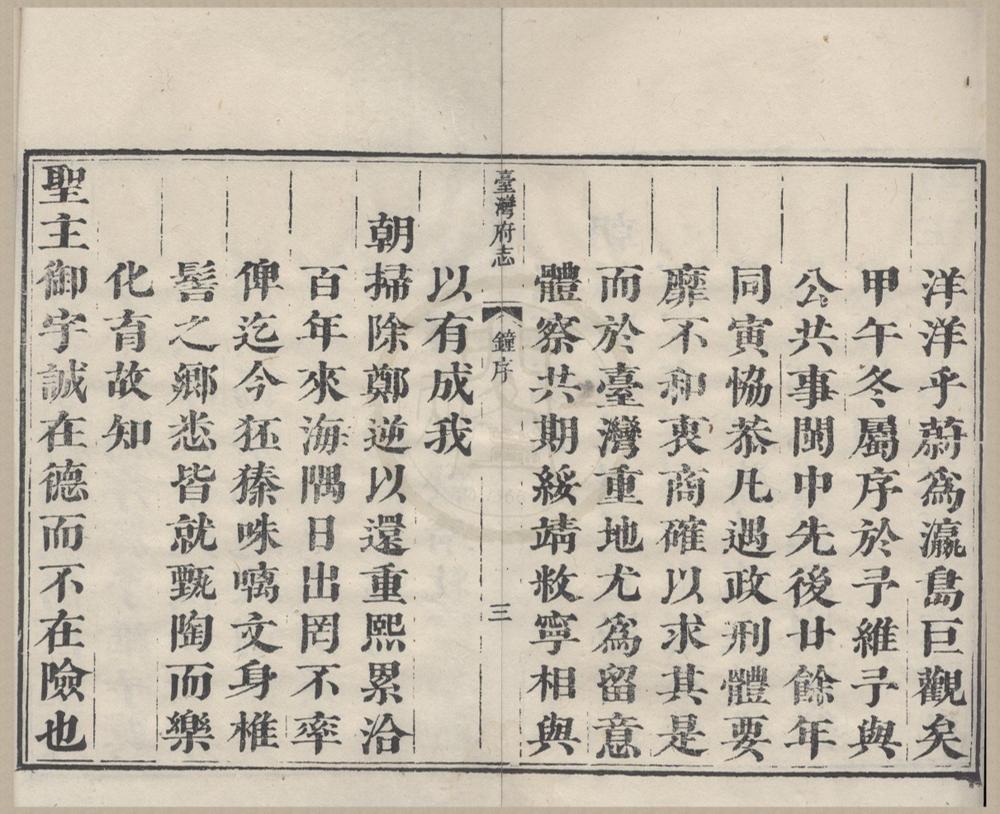 洋洋乎蔚爲瀛島巨觀矣
甲午冬屬序於予維予與
公共事閩中先後廿餘年
同寅恊恭凡遇政刑體要
靡不和衷商確以求其是
而於臺灣重地尤爲留意
體察共期綏靖敉寧相與
臺灣府志
鐘序
三
以有成我
朝掃除鄭逆以還重熙累洽
百年來海隅日出罔不率
俾迄今狉獉咮𠿑文身椎
髻之鄉悉皆就甄陶而樂
化育故知
聖主御宇誠在德而不在險也